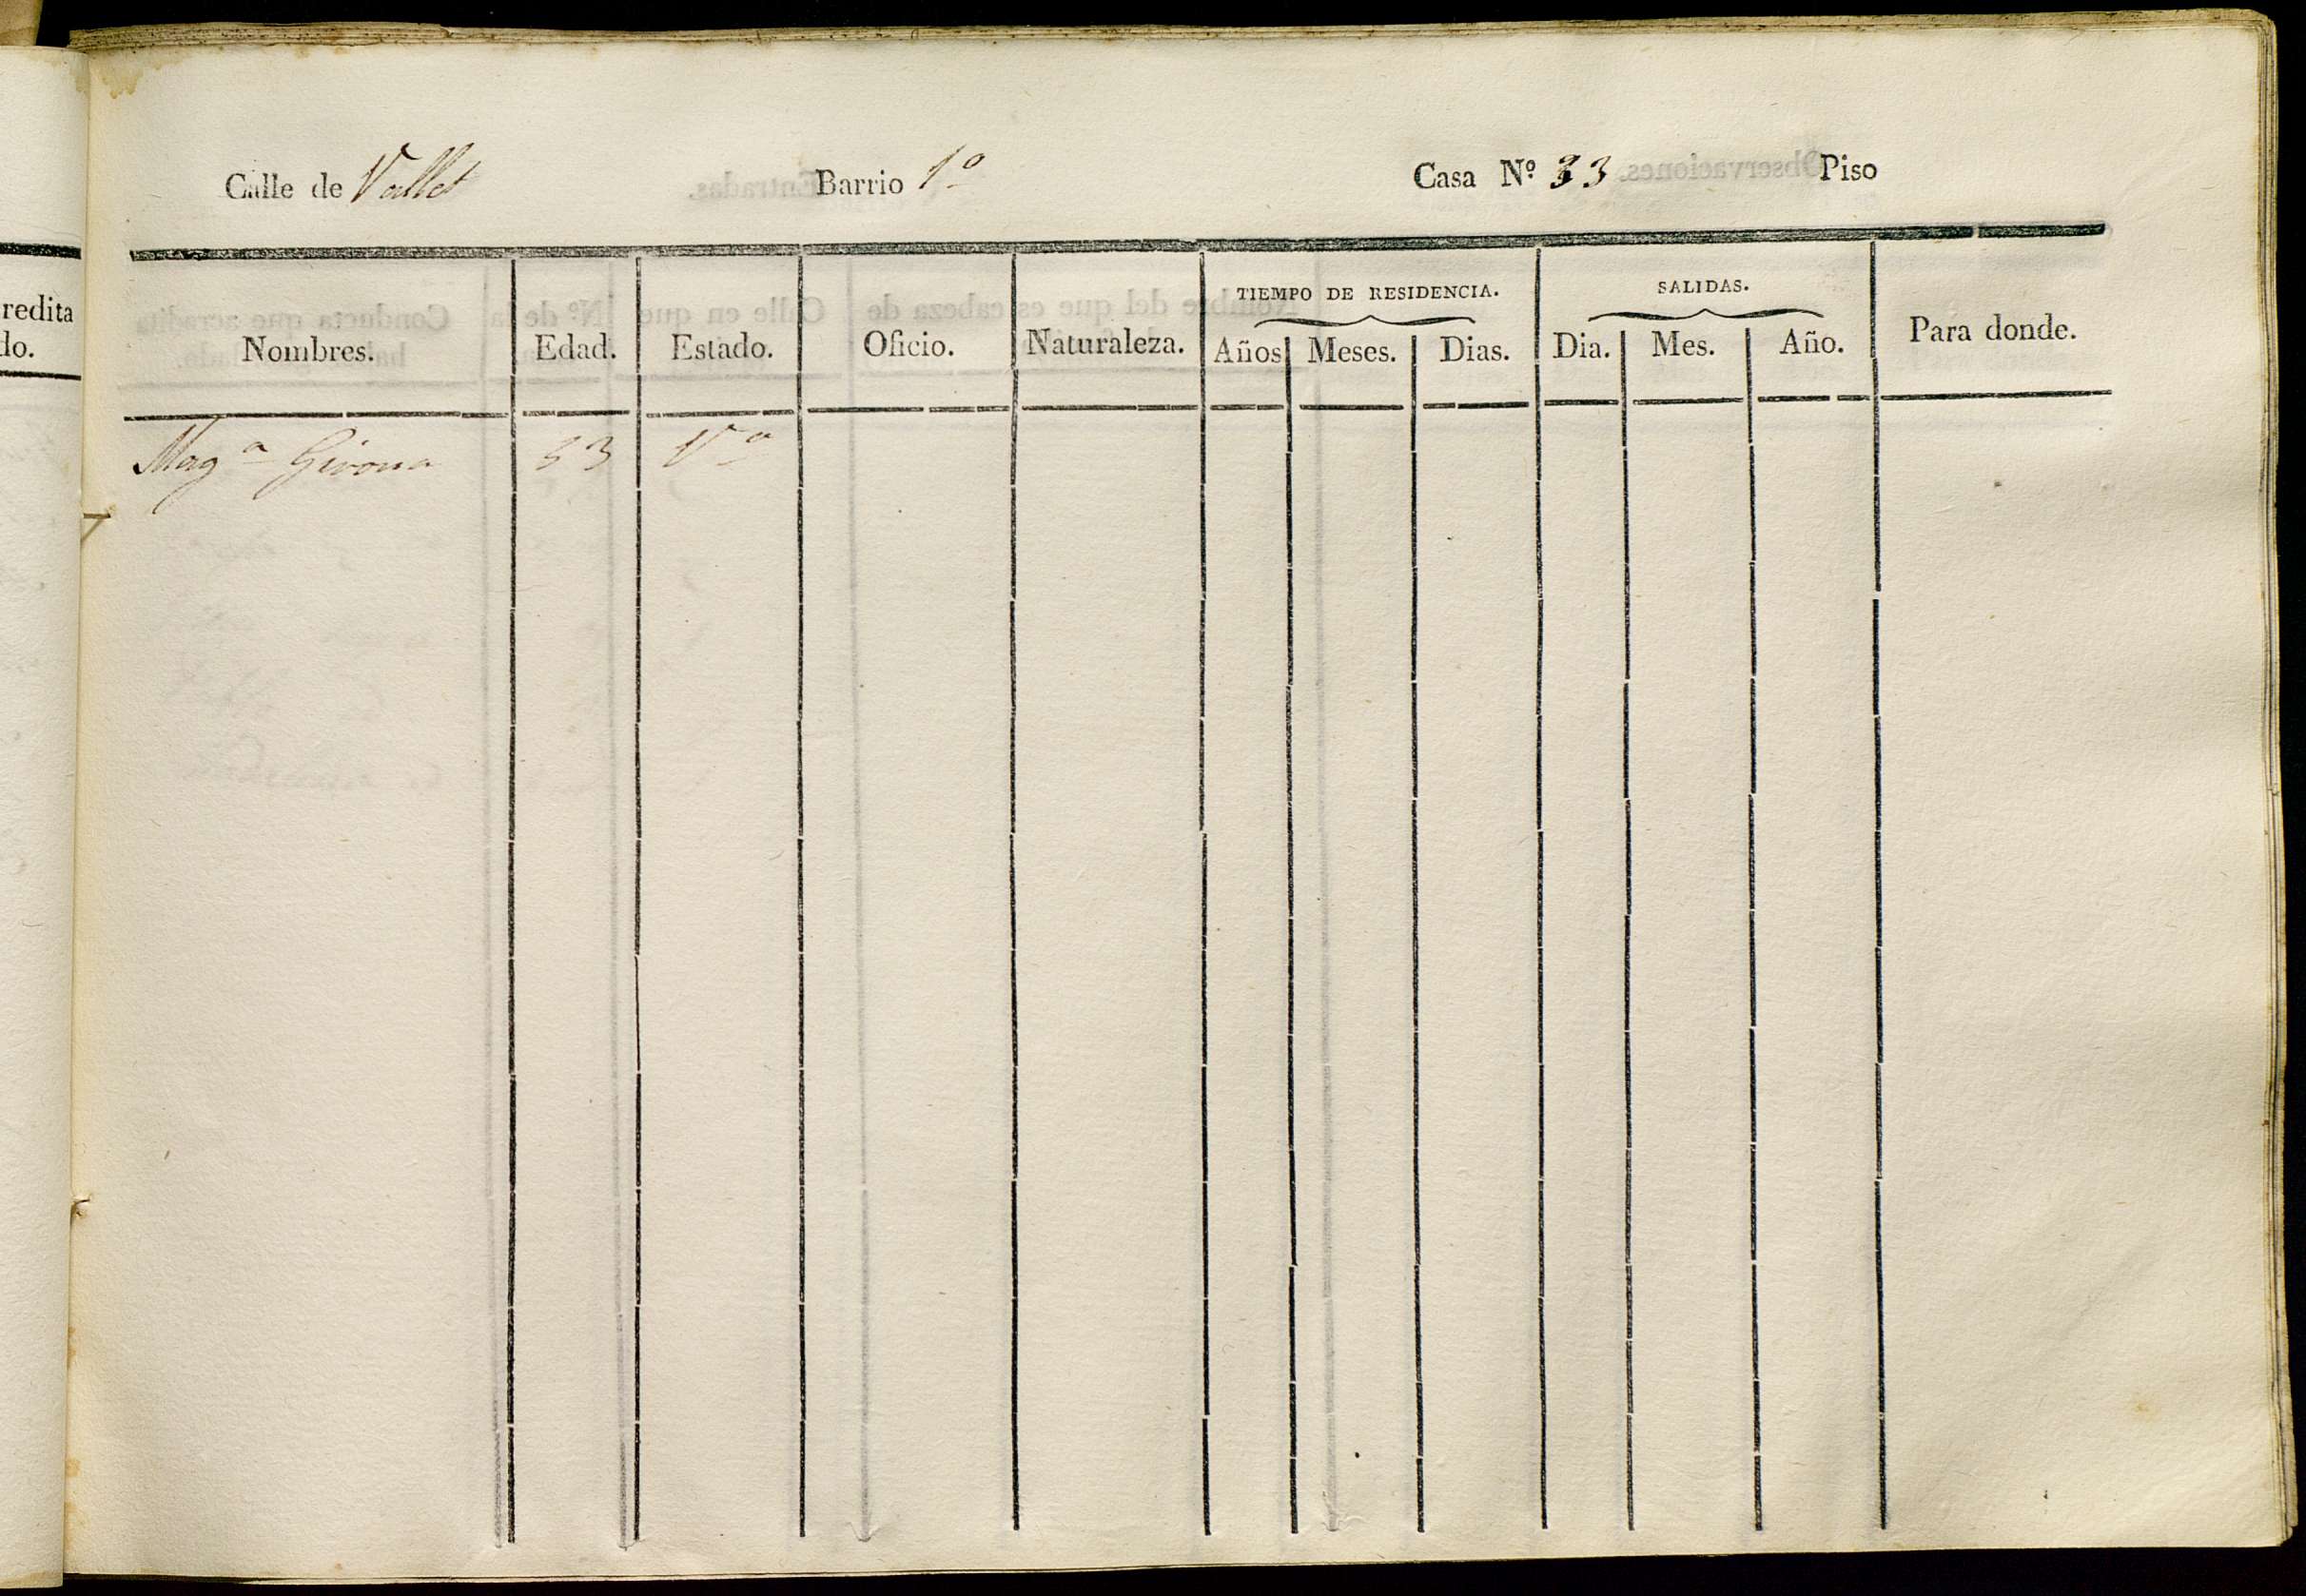 Calle de Vallet Barrio 1º Casa Nº 33 Piso
redita
do.
TIEMPO DE RESIDENCIA. SALIDAS.
Nombres. Edad. Estado. Oficio. Naturaleza. Años Meses. Dias. Dia. Mes. Año. Para donde.
Magª Girona 53 Vª